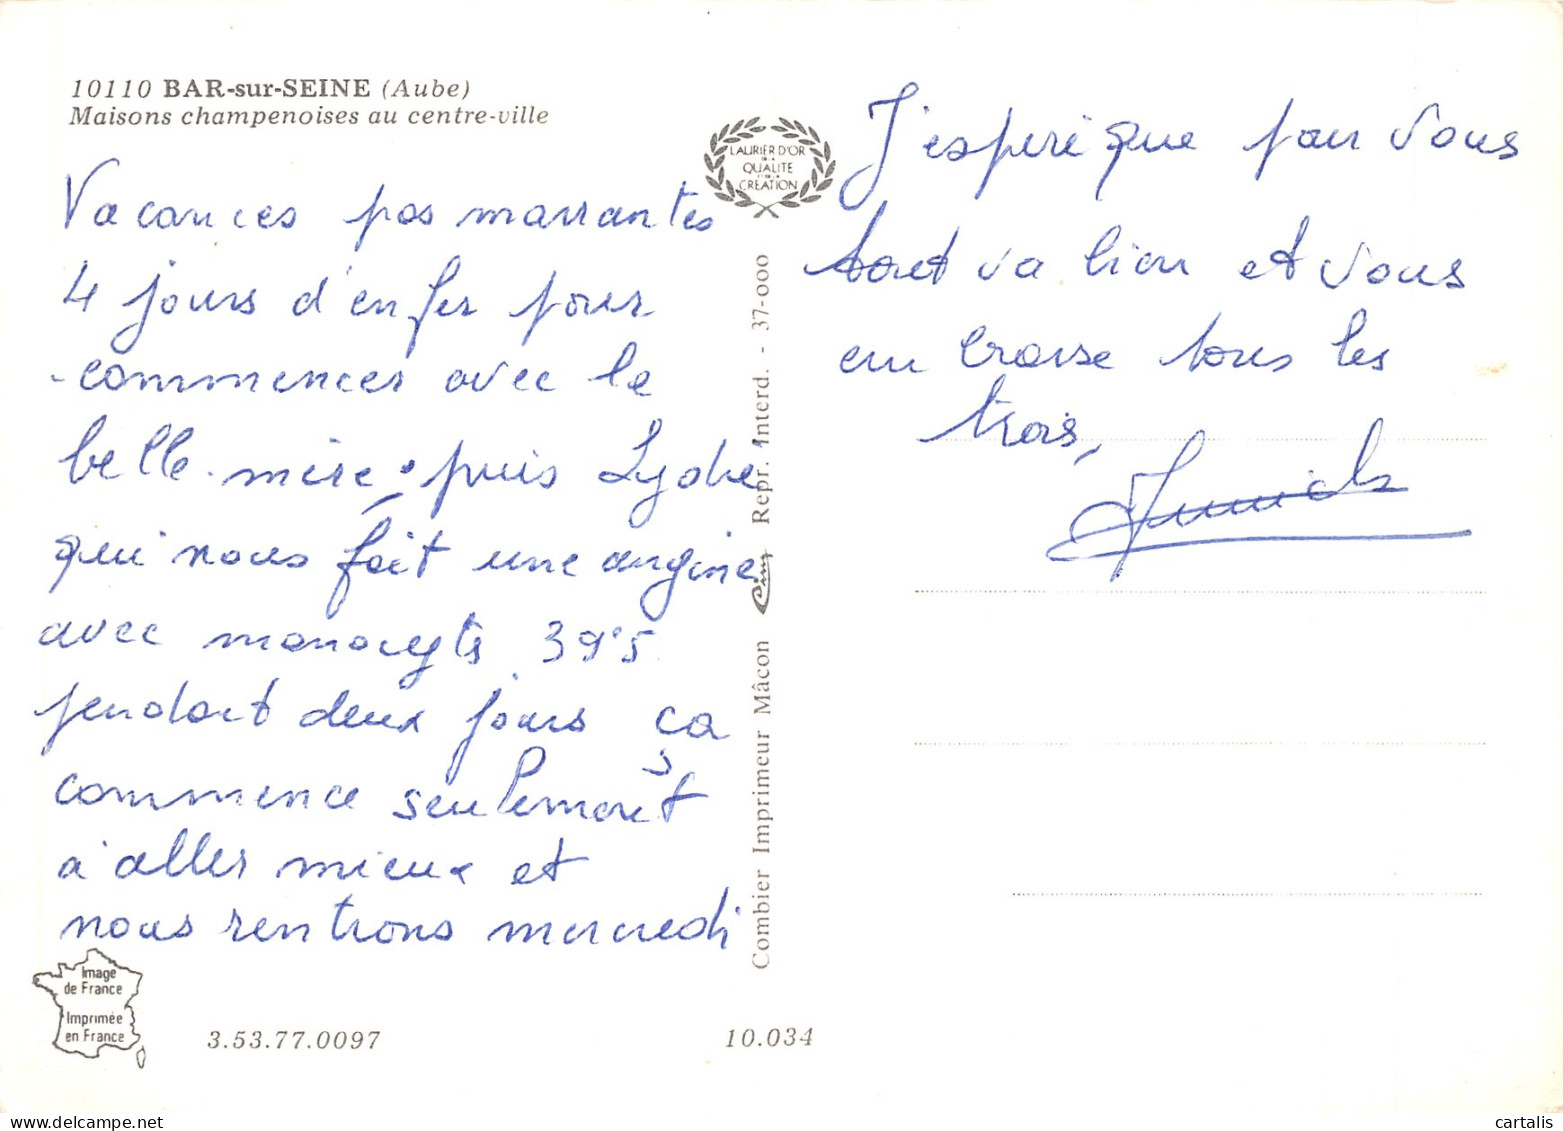 10110 BAR-sur-SEINE (Aube)
Maisons champenoises au centre-ville
Vacances pas marrantes
4 jours d'enfer pour
commencer avec la
belle-mère, puis Lydie
qui nous fait une angine
avec monocyts 39°5
pendant deux jours ça
commence seulement
à aller mieux et
nous rentrons mercredi
Image
de France
Imprimée
en France
3.53.77.0097
10.034
LAURIER D'OR
DE LA
QUALITE
ET DE LA
CREATION
Combier Imprimeur Mâcon Cim Repr. Interd. - 37-000
J'espère que pour vous
tout va bien et vous
em brasse tous les
trois,
cartalis